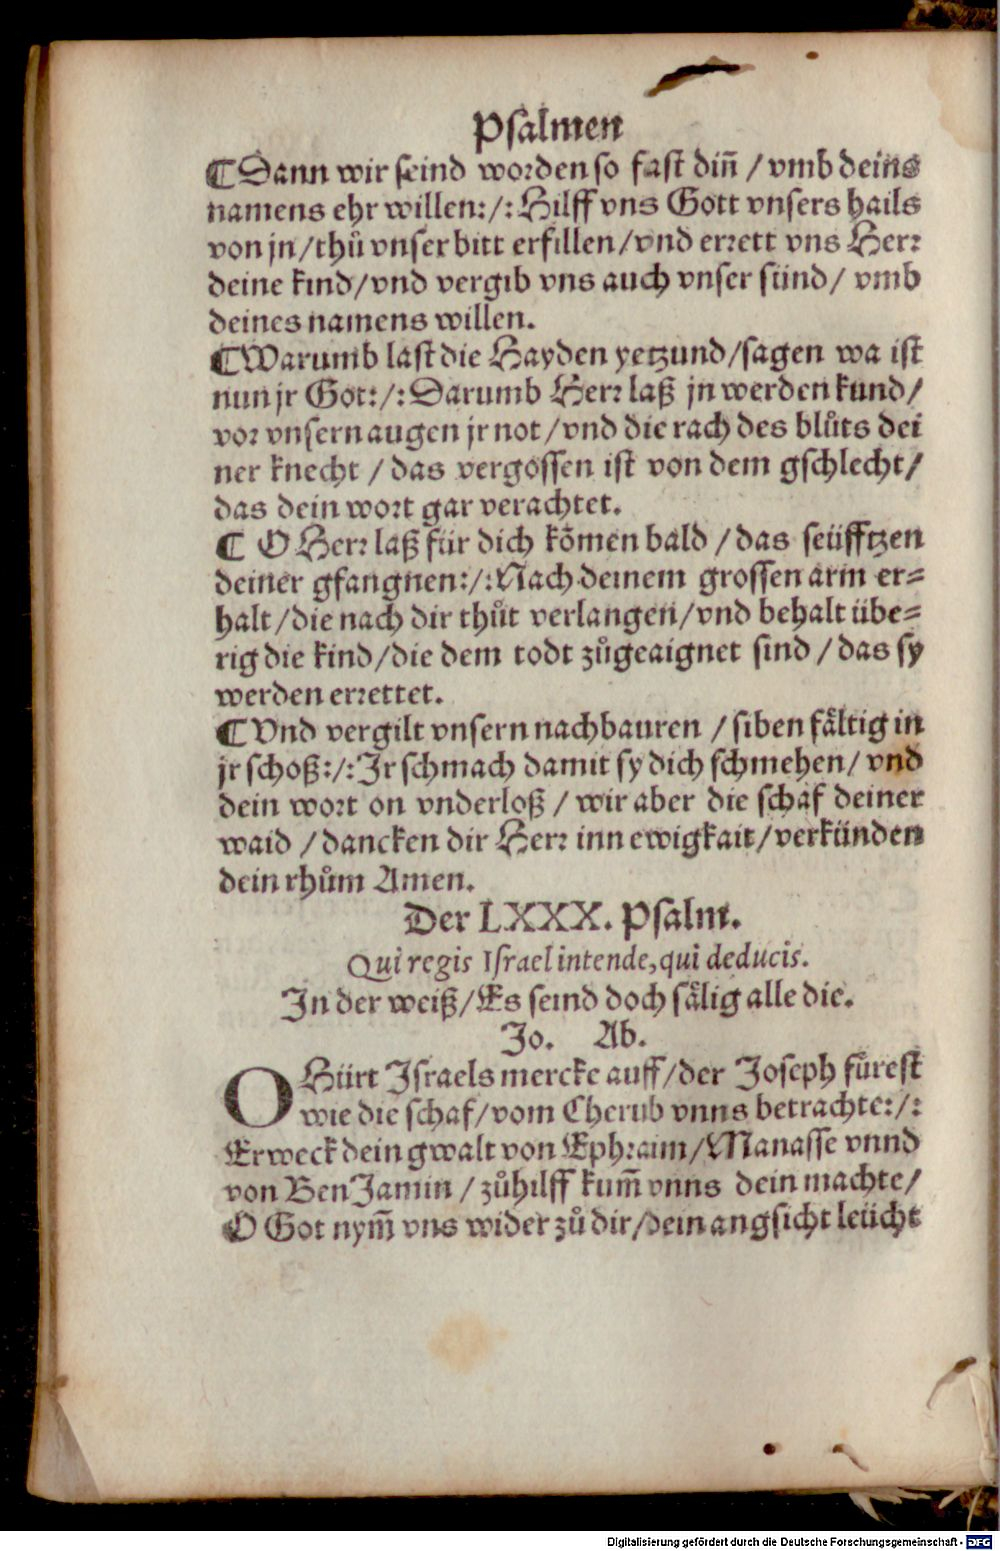 Psalmen
¶Dann wir seind worden so fast diñ / vmb deins
namens ehr willen:/:Hilff vns Gott vnsers hails
von jn/thů vnser bitt erfillen/vnd errett vns Herr
deine kind/vnd vergib vns auch vnser sünd/ vmb
deines namens willen.
¶Warumb last die Hayden yetzund/sagen wa ist
nun jr Got:/:Darumb Herr laß jn werden kund/
vor vnsern augen jr not/vnd die rach des blůts dei
ner knecht / das vergossen ist von dem gschlecht/
das dein wort gar verachtet.
¶ O Herr laß für dich kõmen bald / das seüfftzen
deiner gfangnen:/:Nach deinem grossen arm er=
halt/die nach dir thůt verlangen/vnd behalt übe=
rig die kind/die dem todt zůgeaignet sind / das sy
werden errettet.
¶Vnd vergilt vnsern nachbauren / siben fåltig in
jr schoß:/:Ir schmach damit sy dich schmehen/ vnd
dein wort on vnderloß / wir aber die schaf deiner
waid / dancken dir Herr inn ewigkait/verkünden
dein rhům Amen.
Der LXXX. Psalm.
Qui regis Israel intende, qui deducis.
In der weiß/Es seind doch sålig alle die.
Jo. Ab.
O Hürt Israels mercke auff/der Joseph fürest
wie die schaf/vom Cherub vnns betrachte:/:
Erweck dein gwalt von Ephraim/Manasse vnnd
von Ben Jamin / zůhilff kum̃ vnns dein machte/
O Got nym̃ vns wider zů dir/dein angsicht leücht
Digitalisierung gefördert durch die Deutsche Forschungsgemeinschaft - DFG